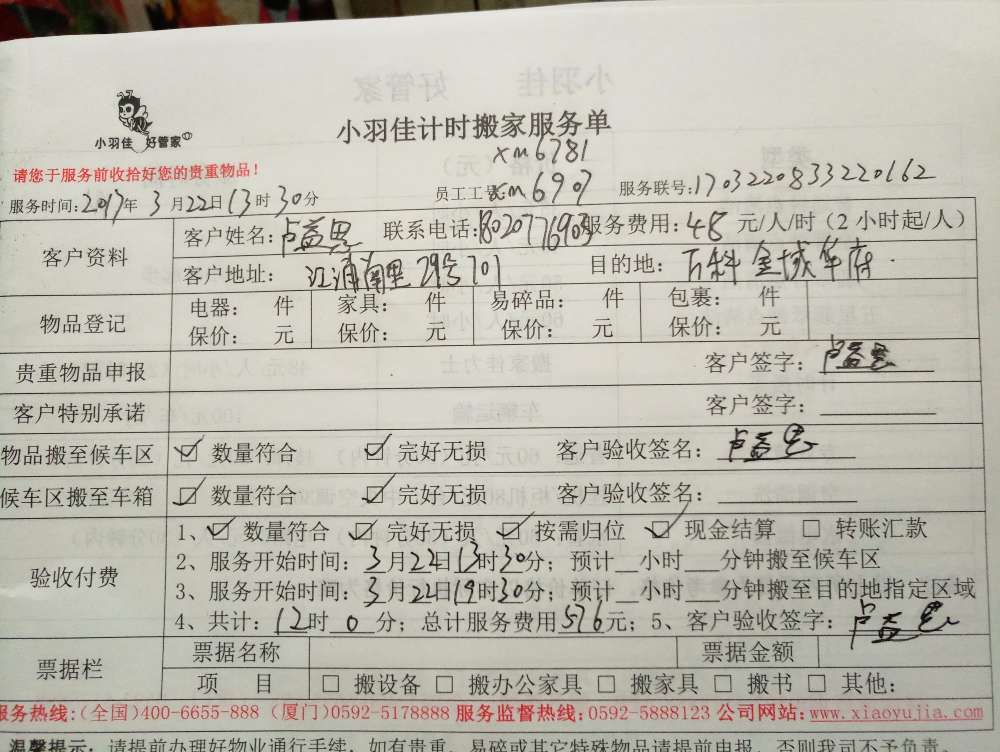 小羽佳 好管家
小羽佳计时搬家服务单
xm6781
请您于服务前收拾好您的贵重物品！
服务时间：2017年 3月22日13时30分 员工工号：xm6907 服务联号：1703220833220162
客户资料 客户姓名：卢益思 联系电话：18020776903 服务费用：48 元/人/时（2小时起/人）
客户地址： 江浦南里29号701 目的地： 万科金域华府
物品登记 电器： 件 家具： 件 易碎品： 件 包裹： 件
保价： 元 保价： 元 保价： 元 保价： 元
贵重物品申报 客户签字：卢益思
客户特别承诺 客户签字：
物品搬至候车区 ☑ 数量符合 ☑ 完好无损 客户验收签名：卢益思
候车区搬至车箱 ☑ 数量符合 ☑ 完好无损 客户验收签名：
验收付费 1、☑ 数量符合 ☑ 完好无损 ☑ 按需归位 ☑ 现金结算 □ 转账汇款
2、服务开始时间：3月22日13时30分；预计__小时___分钟搬至候车区
3、服务开始时间：3月22日19时30分；预计__小时___分钟搬至目的地指定区域
4、共计：12时 0 分；总计服务费用576元；5、客户验收签字：卢益思
票据栏 票据名称 票据金额
项 目 □ 搬设备 □ 搬办公家具 □ 搬家具 □ 搬书 □ 其他：
服务热线：（全国）400-6655-888（厦门）0592-5178888 服务监督热线：0592-5888123 公司网站：www.xiaoyujia.com
温馨提示：请提前办理好物业通行手续，如有贵重、易碎或其它特殊物品请提前申报，否则我司不予负责。